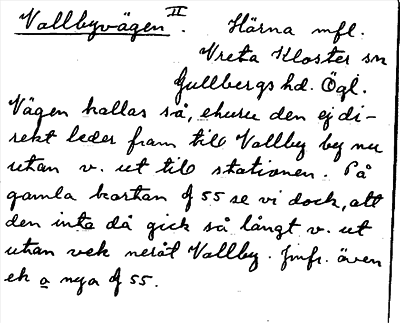 Vallbyvägen II. Härna mfl.
Vreta Kloster sn
Gullbergs hd. Ögl.
Vägen kallas så, ehuru den ej di-
rekt leder fram till Vallby by nu
utan v. ut till stationen. På
gamla kartan 55 se vi dock, att
den inte då gick så långt v. ut
utan vek neråt Vallby. Jmfr. även
ek a nya 55.